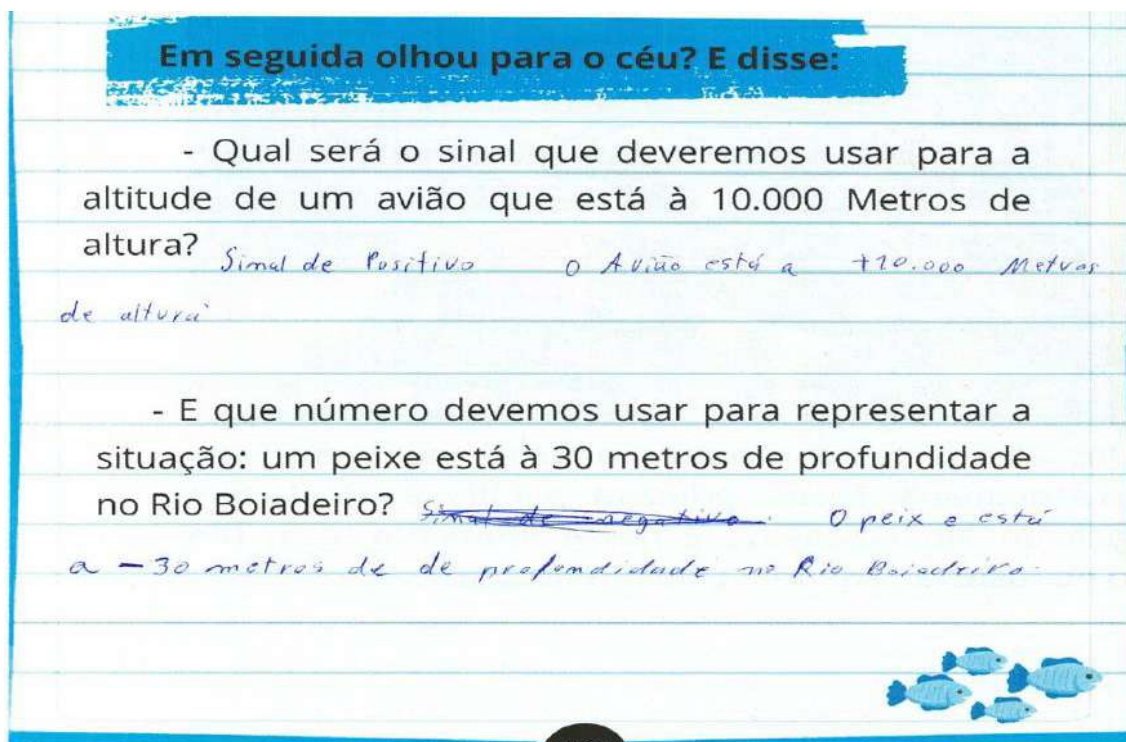 Em seguida olhou para o céu? E disse:
- Qual será o sinal que deveremos usar para a
altitude de um avião que está à 10.000 Metros de
altura? Sinal de Positivo O Avião está a +10.000 Metros
de altura
- E que número devemos usar para representar a
situação: um peixe está à 30 metros de profundidade
no Rio Boiadeiro? Sinal de negativo. O peixe está
a - 30 metros de de profundidade no Rio Boiadeiro.